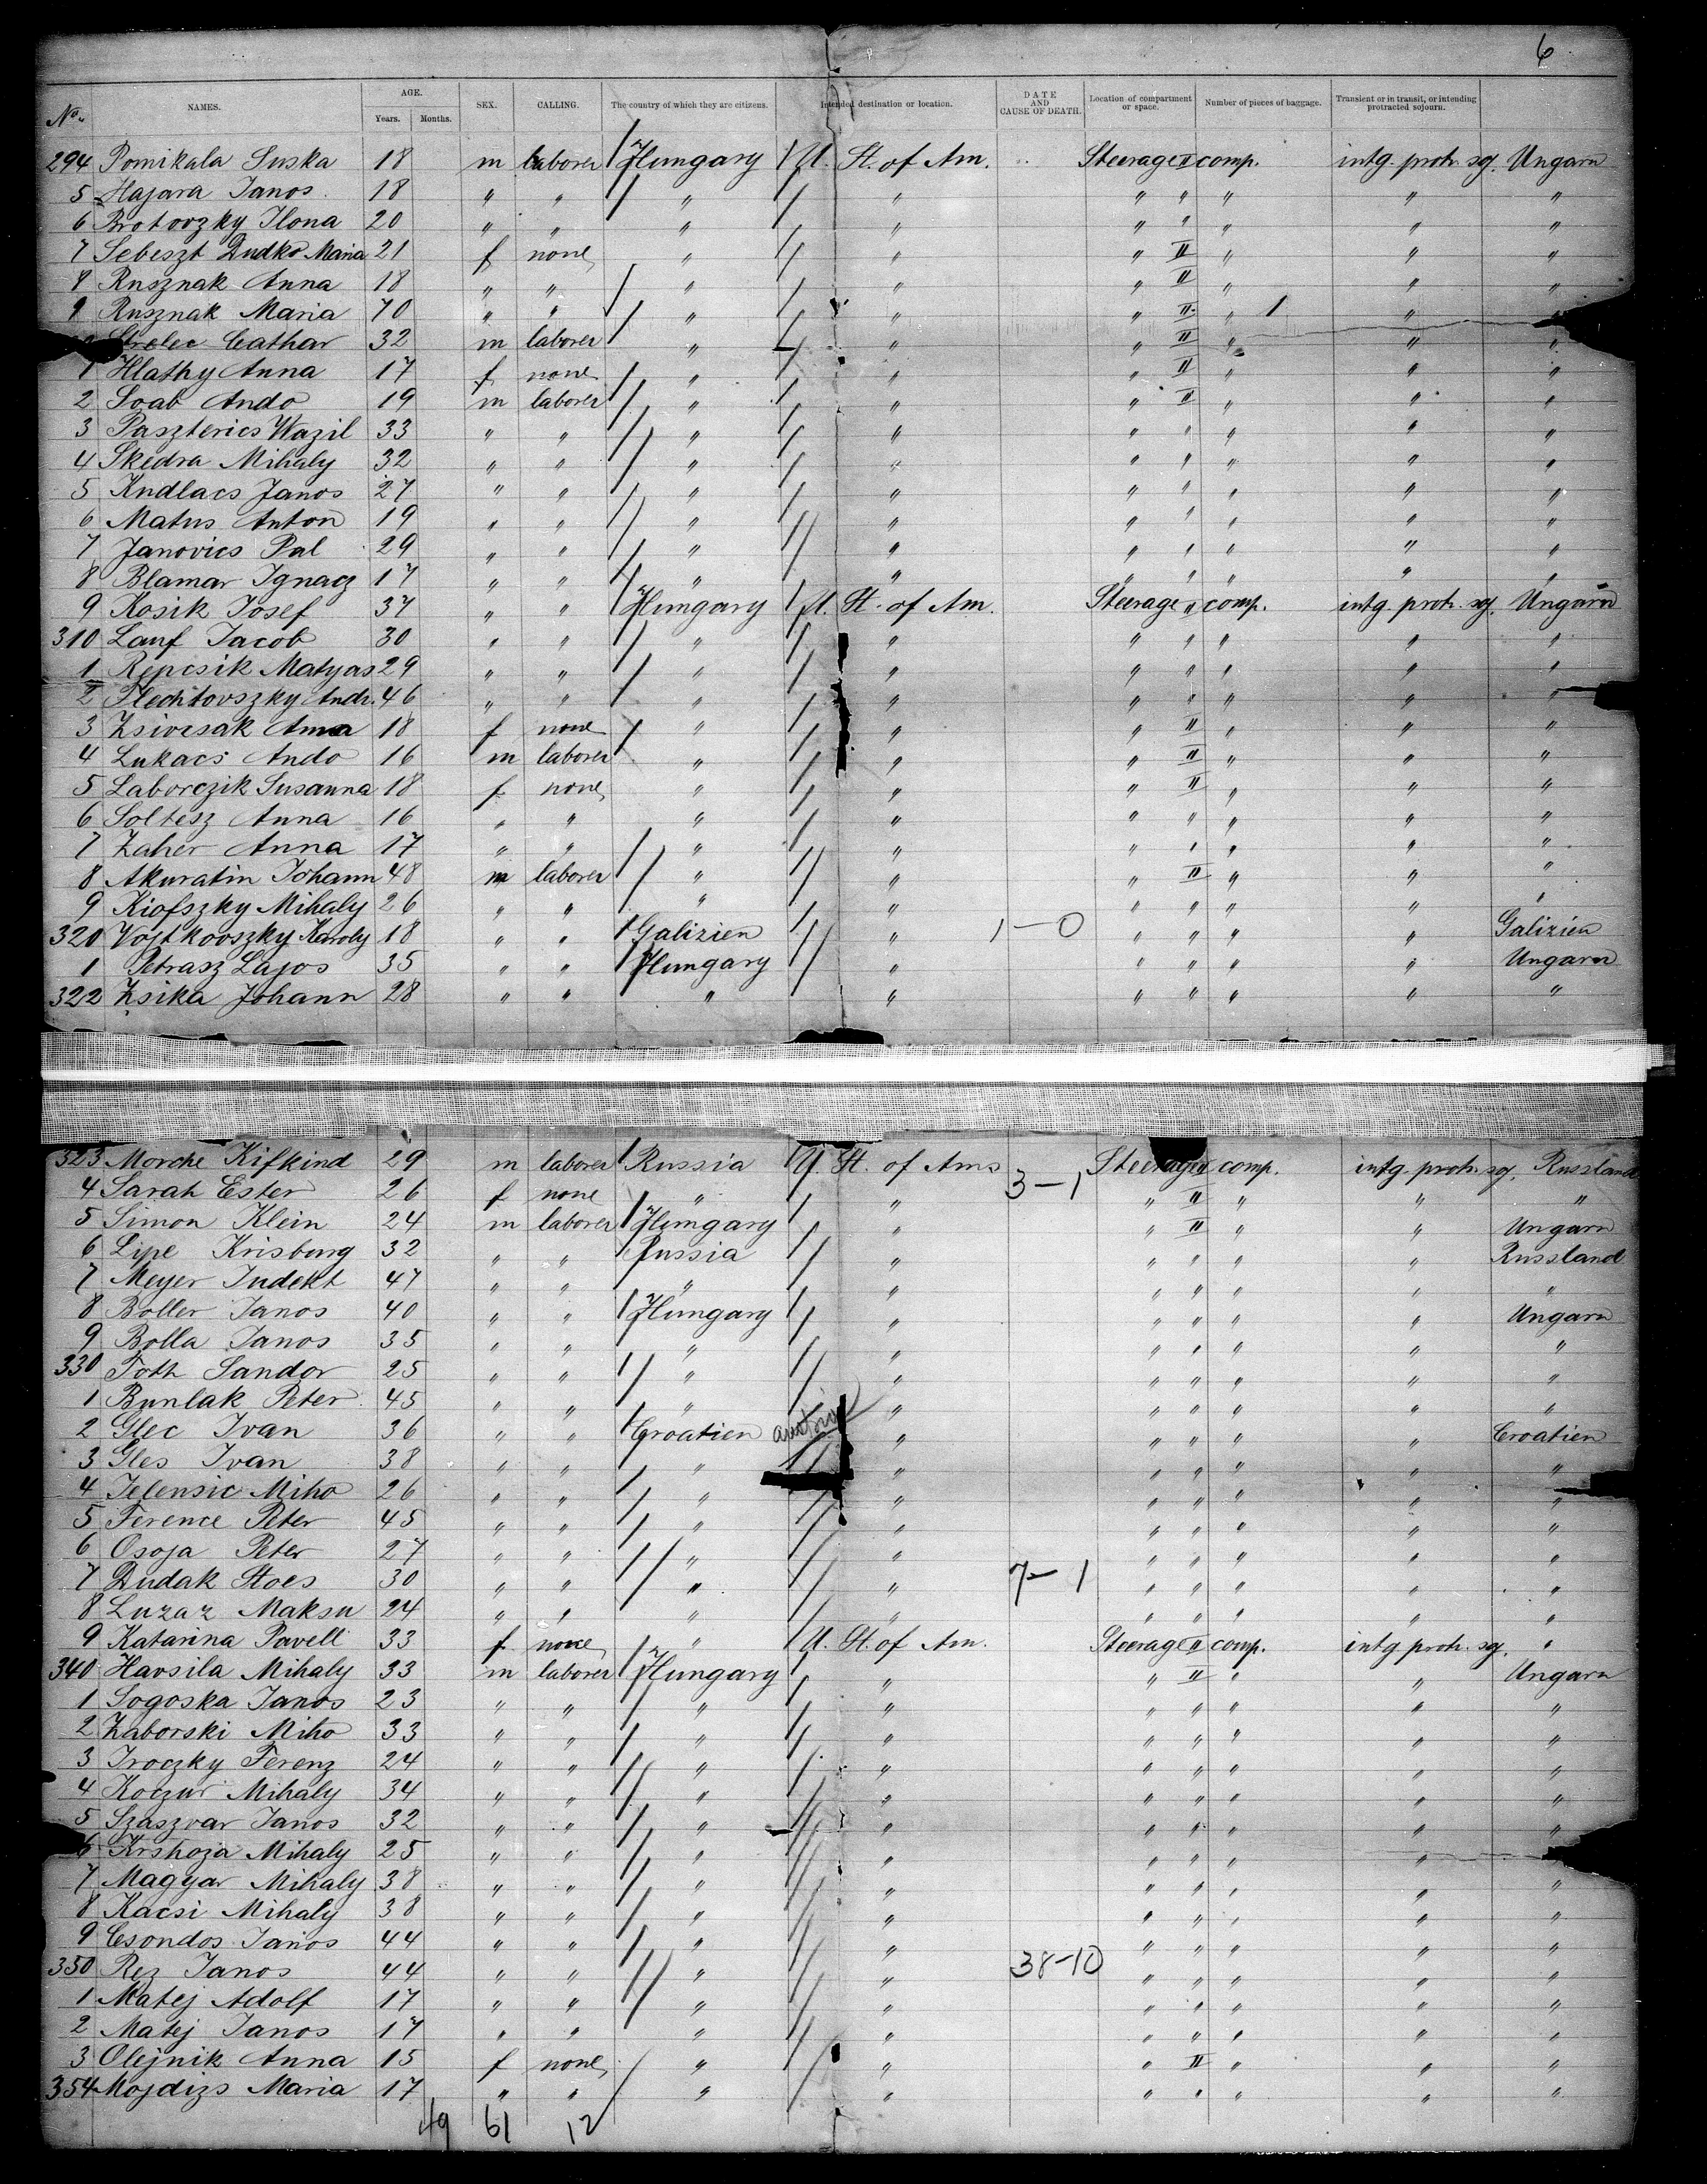 6
No. NAMES. AGE. Years. Months. SEX. CALLING. The country of which they are citizens. Intended destination or location. DATE AND CAUSE OF DEATH. Location of compartment or space. Number of pieces of baggage. Transient or in transit, or intending protracted sojourn.
294 Pomikala Suska 18 m laborer Hungary U. St. of Am. Steerage II comp. intg. protr. soj. Ungarn
5 Hajara Janos 18 " " " " " " " " "
6 Brotovzky Ilona 20 " " " " " " " " "
7 Sebeszt Dudko Maria 21 f none " " " II " " "
8 Rusznak Anna 18 " " " " " II " " "
9 Rusznak Maria 70 " " " " " II " 1 " "
Strelec Cathar 32 m laborer " " " II " " "
1 Hlathy Anna 17 f none " " " II " " "
2 Soab Ando 19 m laborer " " " II " " "
3 Paszterics Wazil 33 " " " " " " " " "
4 Skedra Mihaly 32 " " " " " " " " "
5 Kudlacs Janos 27 " " " " " " " " "
6 Matus Anton 19 " " " " " " " " "
7 Janovics Pal 29 " " " " " " " " "
8 Blamar Ignacz 17 " " " " " " " " "
9 Kosik Josef 37 " " Hungary U. St. of Am. Steerage " comp. intg. protr. soj. Ungarn
310 Lauf Jacob 30 " " " " " " " " "
1 Repcsik Matyas 29 " " " " " " " " "
2 Flechtovszky Andr. 46 " " " " " " " " "
3 Zsivcsak Anna 18 f none " " " II " " "
4 Lukacs Ando 16 m laborer " " " II " " "
5 Laborczik Susanna 18 f none " " " II " " "
6 Soltesz Anna 16 " " " " " " " " "
7 Zaher Anna 17 " " " " " " " " "
8 Akuratin Johann 48 m laborer " " " II " " "
9 Kiofszky Mihaly 26 " " " " " " " " "
320 Vojtkovszky Karoly 18 " " Galizien " 1-0 " " " " Galizien
1 Petrasz Lajos 35 " " Hungary " " " " " Ungarn
322 Zsika Johann 28 " " " " " " " " "
323 Morche Kifkind 29 m laborer Russia U. St. of Am. Steerage II comp. intg. protr. soj. Russland
4 Sarah Ester 26 f none " " 3-1 " II " " "
5 Simon Klein 24 m laborer Hungary " " II " " Ungarn
6 Lipe Krisborg 32 " " Russia " " " " " Russland
7 Meyer Judekt 47 " " " " " " " " "
8 Boller Janos 40 " " Hungary " " " " " Ungarn
9 Bolla Janos 35 " " " " " " " " "
330 Toth Sandor 25 " " " " " " " " "
1 Bunlak Peter 45 " " " " " " " " "
2 Glec Ivan 36 " " Croatien Austria " " " " " Croatien
3 Gles Ivan 38 " " " " " " " " "
4 Jelensic Miho 26 " " " " " " " " "
5 Ference Peter 45 " " " " " " " " "
6 Osoja Peter 27 " " " " " " " " "
7 Dudak Stoes 30 " " " " 7-1 " " " " "
8 Luzaz Maksu 24 " " " " " " " " "
9 Katarina Pavell 33 f none " U. St. of Am. Steerage II comp. intg protr. soj. "
340 Havsila Mihaly 33 m laborer Hungary " " II " " Ungarn
1 Sogoska Janos 23 " " " " " " " " "
2 Zaborski Miho 33 " " " " " " " " "
3 Troczky Ferenz 24 " " " " " " " " "
4 Koczur Mihaly 34 " " " " " " " " "
5 Szaszvar Janos 32 " " " " " " " " "
6 Krshoja Mihaly 25 " " " " " " " "
7 Magyar Mihaly 38 " " " " " " " " "
8 Kacsi Mihaly 38 " " " " " " " " "
9 Csondos Janos 44 " " " " " " " " "
350 Rez Janos 44 " " " " 38-10 " " " " "
1 Matej Adolf 17 " " " " " " " " "
2 Matej Janos 17 " " " " " " " " "
3 Olejnik Anna 15 f none " " " II " " "
354 Mojdizs Maria 17 " " " " " " " " "
49 61 12